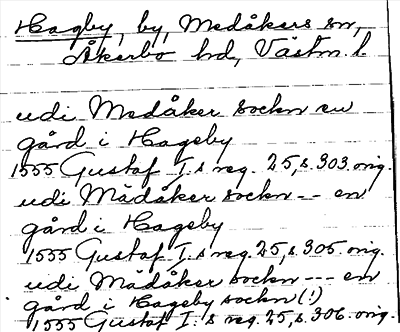 Hagby, by, Medåkers sn,
Åkerbo hd, Västm. l
udi Medåker sockn en
gård i Hageby
1555 Gustaf I.s reg. 25, s. 303. orig.
udi Mädåker sockn -- en
gård i Hageby
1555 Gustaf I.s reg. 25, s. 305. orig.
udi Mädåker sockn --- en
gård i Hageby sockn (!)
1555 Gustaf I.s reg. 25, s. 306. orig.